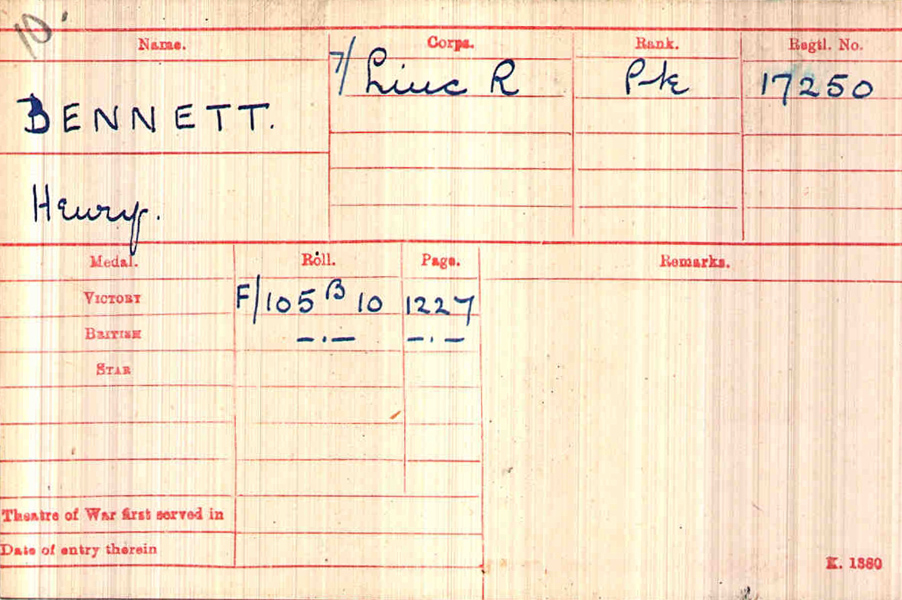 10.
Name. Corps. Rank. Regtl. No.
7/ Linc R Pte 17250
BENNETT.
Henry.
Medal. Roll. Page. Remarks.
VICTORY F/105 B 10 1227
BRITISH —.— —.—
STAR
Theatre of War first served in
Date of entry therein
K. 1380